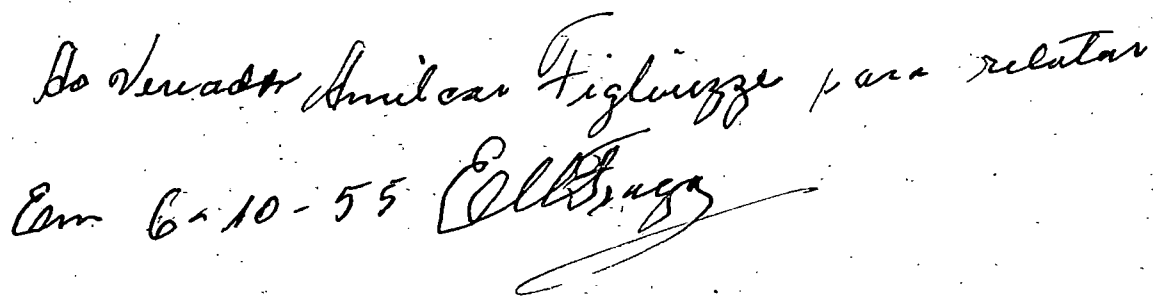 Ao Vereador Amilcar Figliuzze para relatar
Em 6-10-55